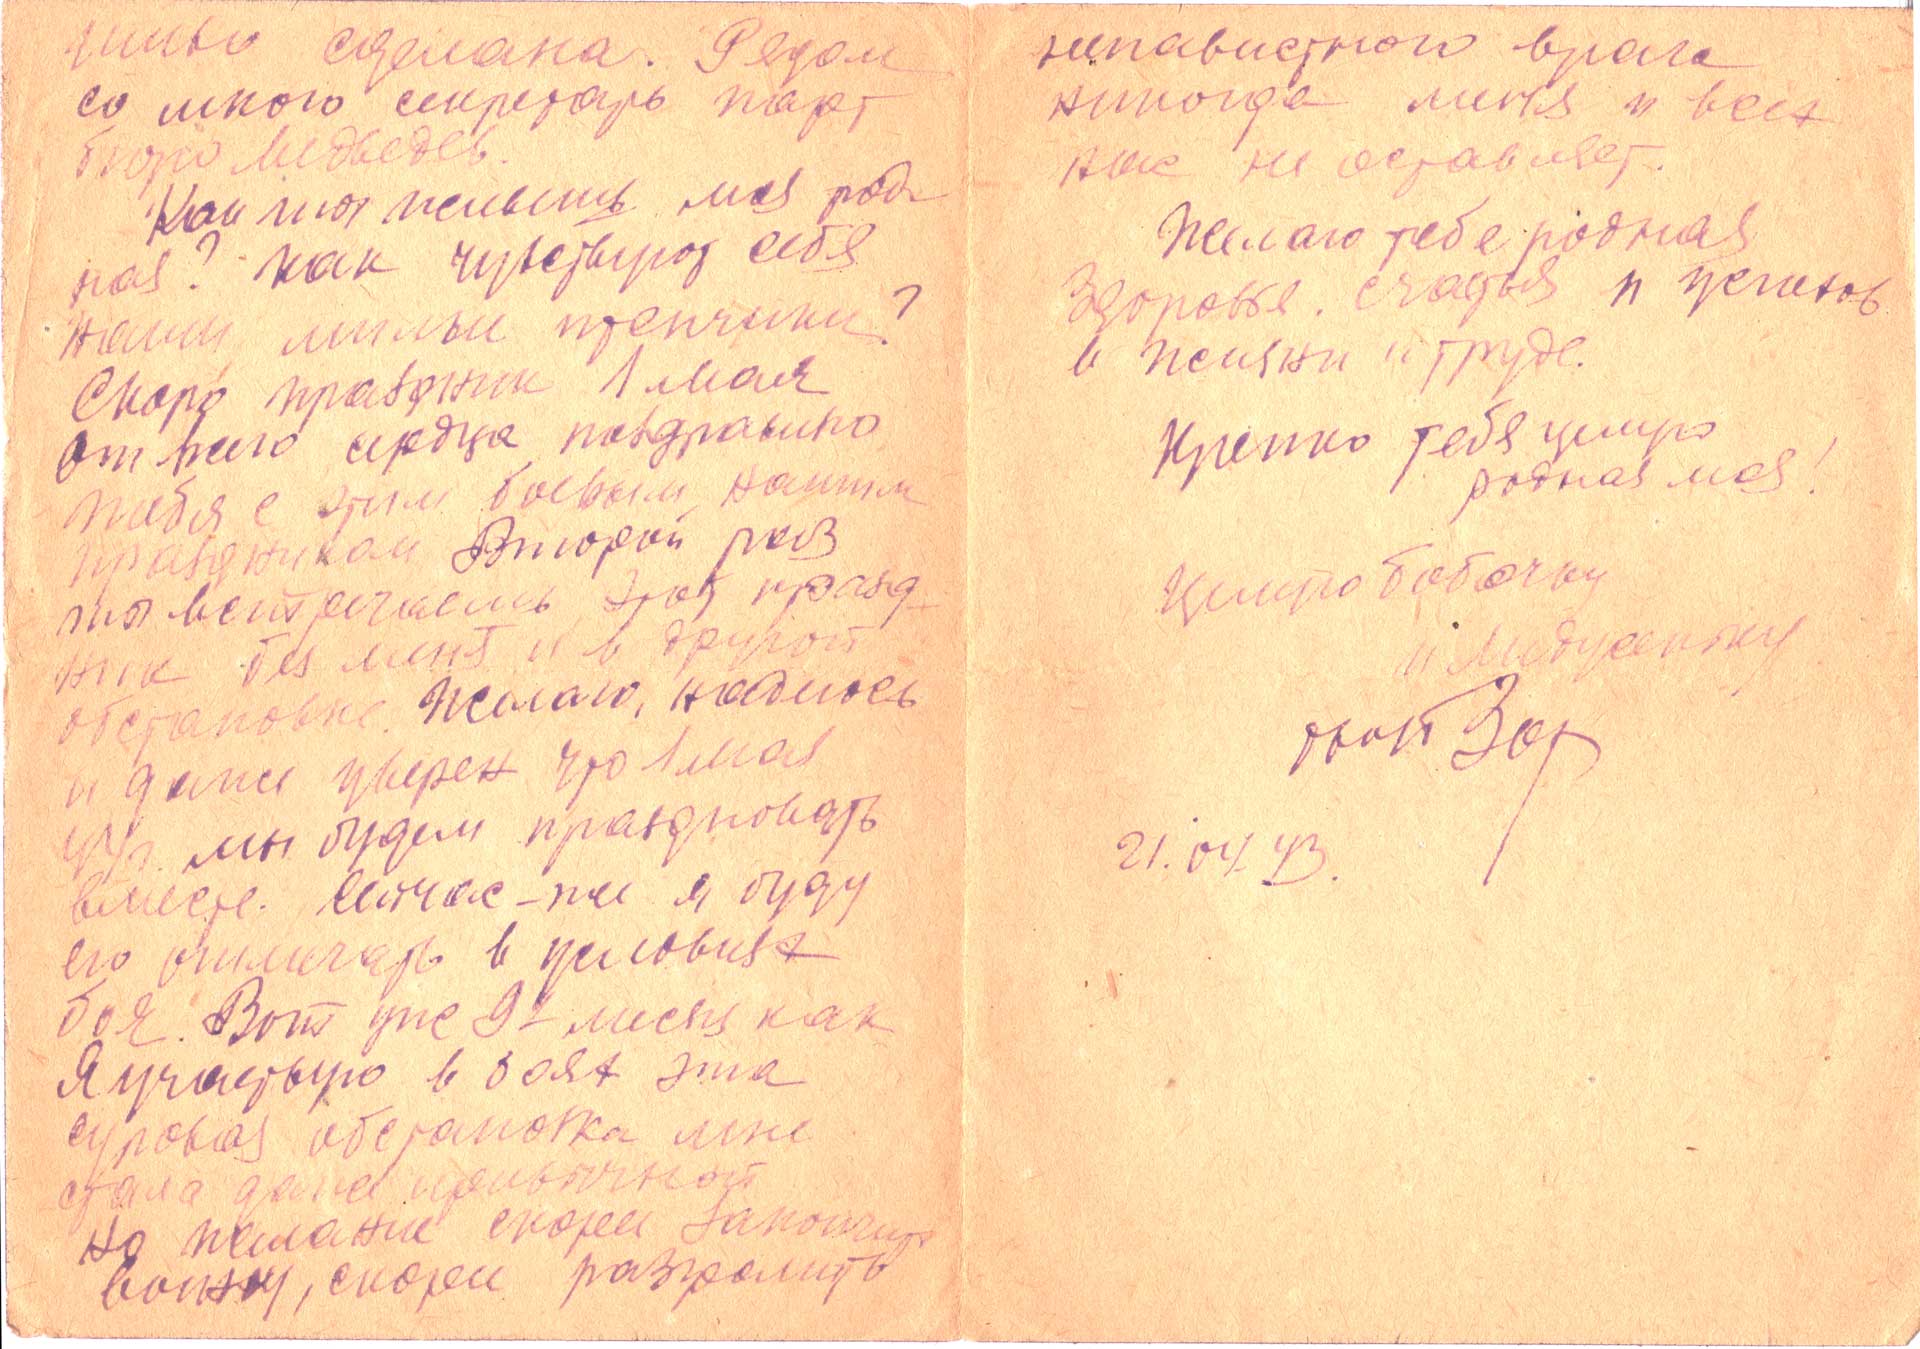 сделана. Рядом
со мною секретарь парт
бюро Медведев.
Как ты живешь моя род
ная? Как чувствуют себя
наши милые птенчики?
Скоро праздник 1 мая
От всего сердца поздравляю
тебя с этим боевым нашим
праздником Второй раз
ты встречаешь этот празд-
ник без меня и в другой
обстановке. Желаю, надеюсь
и даже уверен что 1 мая
44 г. мы будем праздновать
вместе. Сейчас-же я буду
его отмечать в условиях
боя. Вот уже 9й месяц как
Я участвую в боях эта
суровая обстановка мне
стала даже привычной
но желание скорее закончить
войну, скорее разгромить
ненавистного врага
никогда меня и всех
нас не оставляет.
Желаю тебе родная
Здоровья. счастья и успехов
в жизни и труде.
Крепко тебя целую
родная моя!
Целую Бобочку
и Медусеньку
твой Зор
21.04.43.